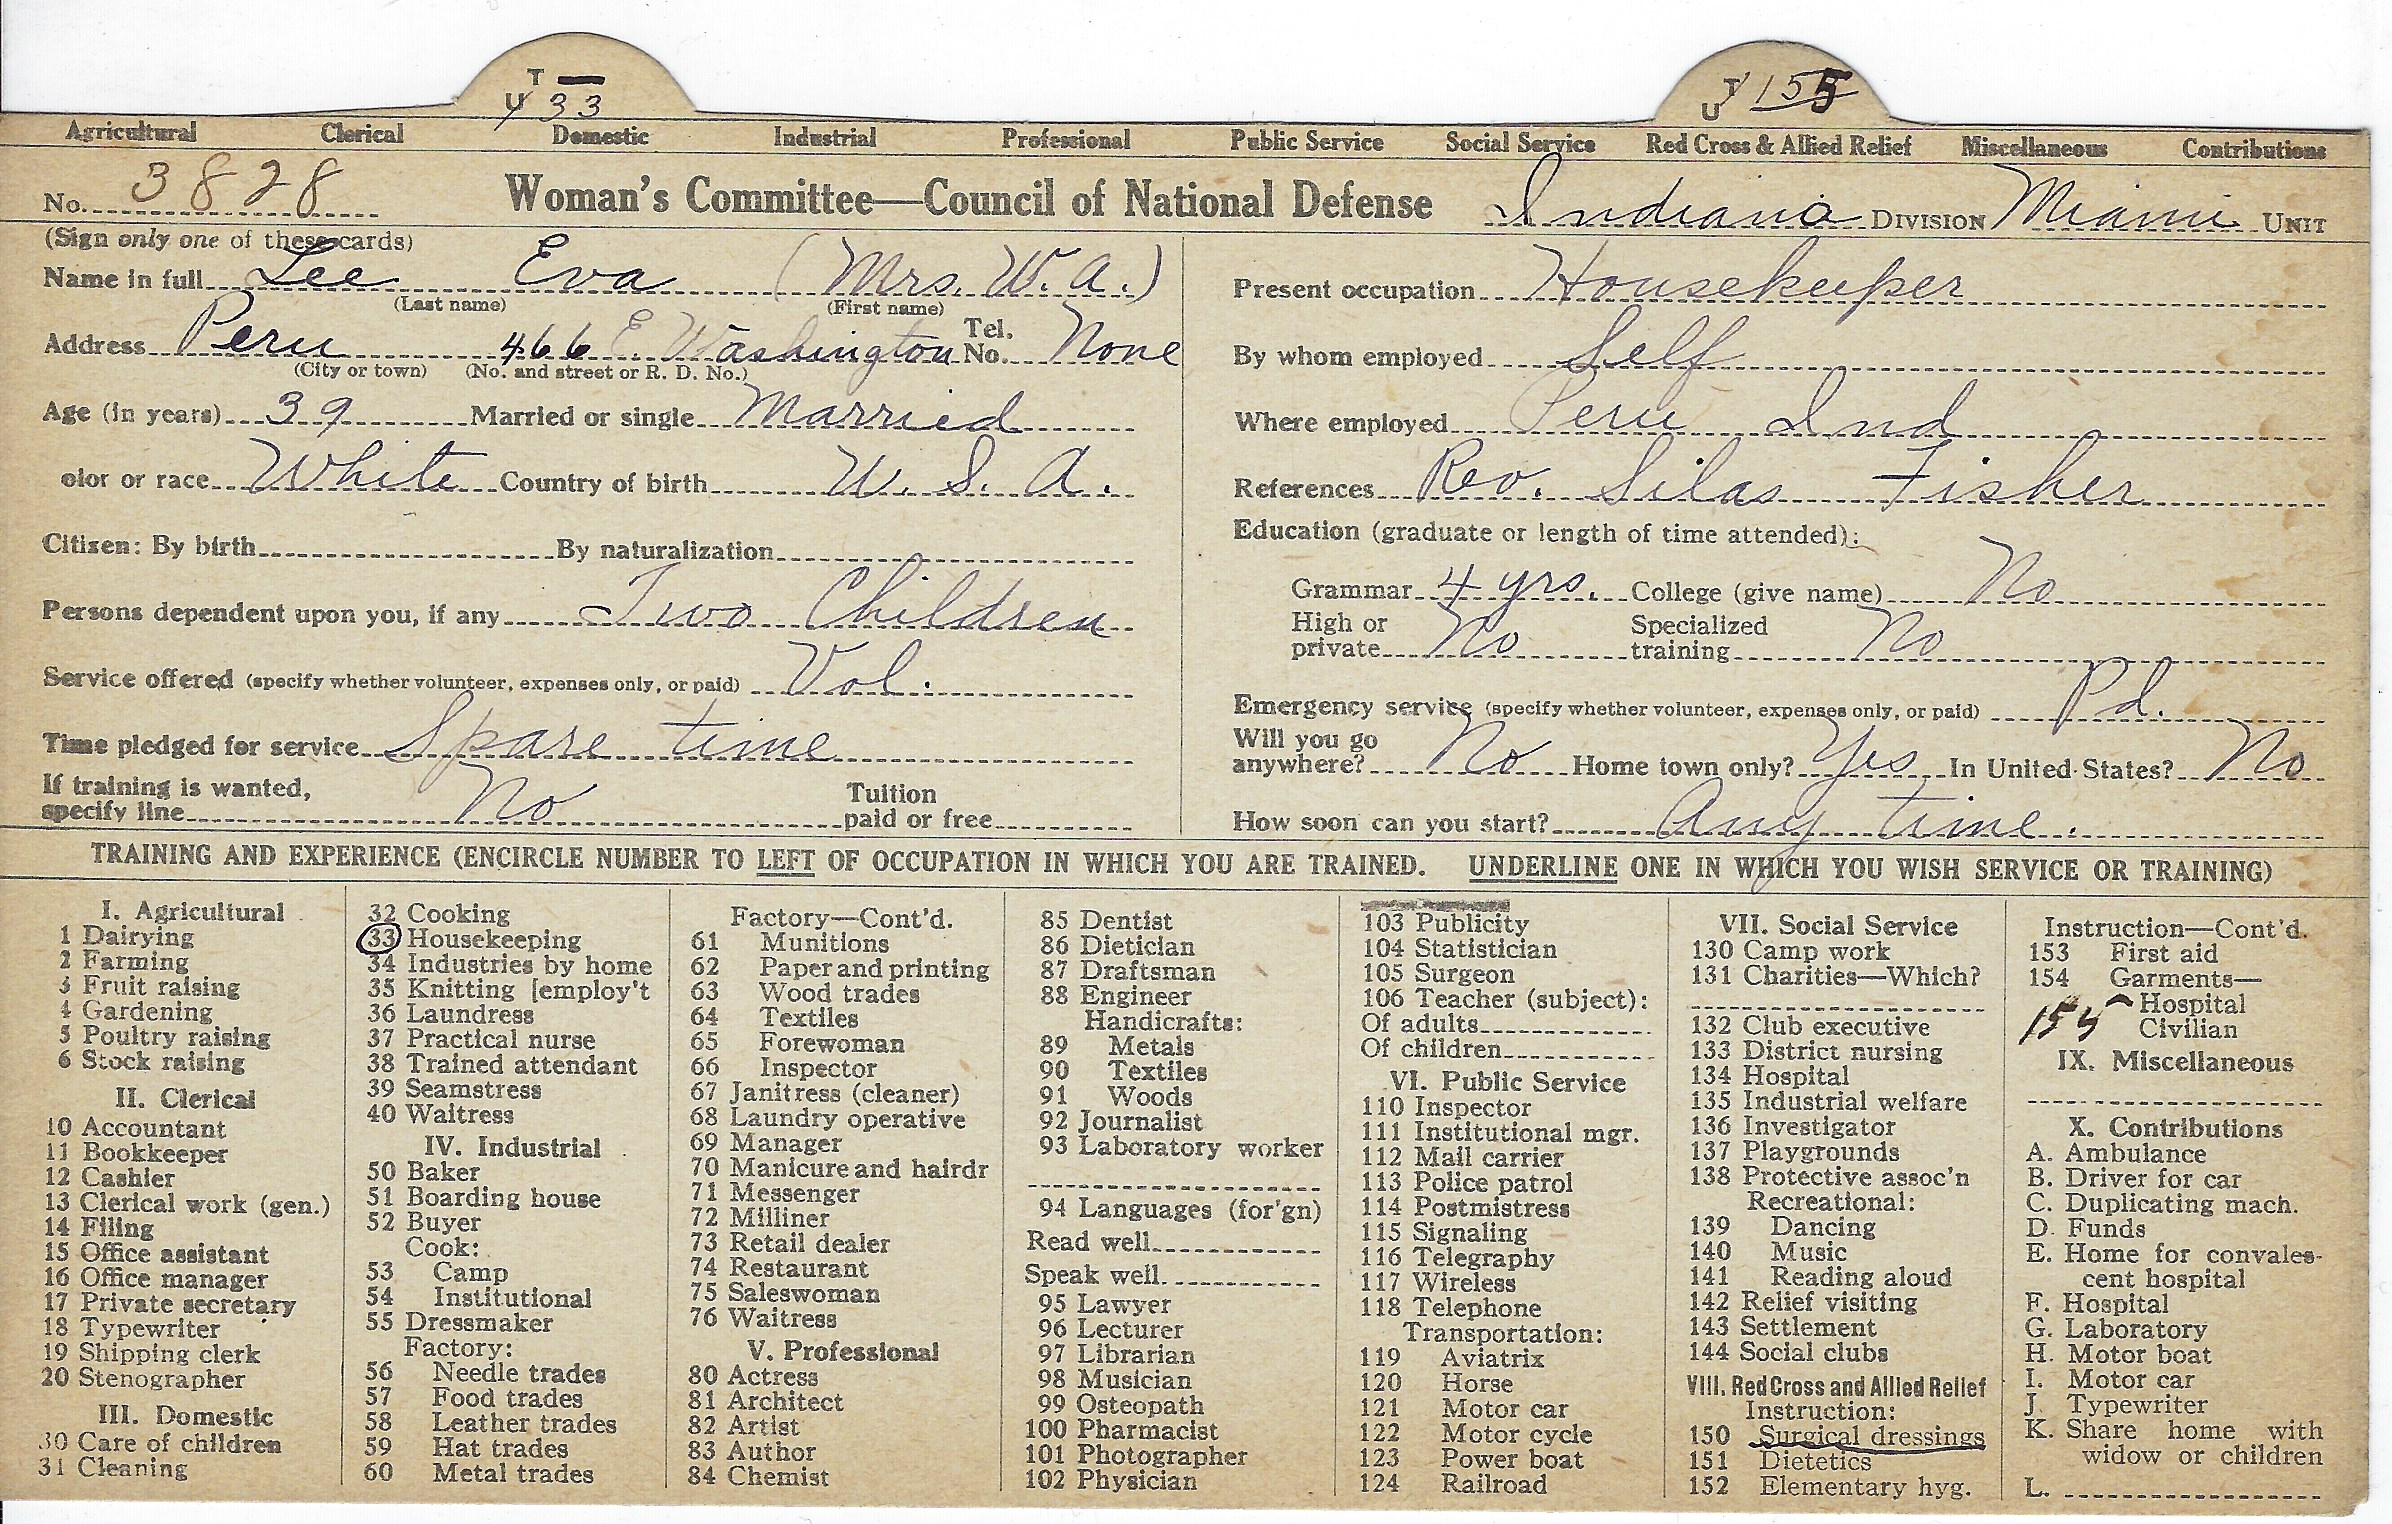 T — U 33
T U 155
Agricultural Clerical Domestic Industrial Professional Public Service Social Service Red Cross & Allied Relief Miscellaneous Contributions
No. 3828 Woman's Committee—Council of National Defense Indiana DIVISION Miami UNIT
(Sign only one of these cards)
Name in full Lee Eva (Mrs. W. A.)
(Last name) (First name)
Address Peru 466 E. Washington Tel. No. None
(City or town) (No. and street or R. D. No.)
Age (in years) 39 Married or single Married
olor or race White Country of birth U. S. A.
Citizen: By birth By naturalization
Persons dependent upon you, if any Two Children
Service offered (specify whether volunteer, expenses only, or paid) Vol.
Time pledged for service Spare time
If training is wanted, specify line No Tuition paid or free
Present occupation Housekeeper
By whom employed Self
Where employed Peru Ind
References Rev. Silas Fisher
Education (graduate or length of time attended):
Grammar 4 yrs. College (give name) No
High or private No Specialized training No
Emergency service (specify whether volunteer, expenses only, or paid) Pd.
Will you go anywhere? No Home town only? Yes In United States? No
How soon can you start? Any time.
TRAINING AND EXPERIENCE (ENCIRCLE NUMBER TO LEFT OF OCCUPATION IN WHICH YOU ARE TRAINED. UNDERLINE ONE IN WHICH YOU WISH SERVICE OR TRAINING)
I. Agricultural
1 Dairying
2 Farming
3 Fruit raising
4 Gardening
5 Poultry raising
6 Stock raising
II. Clerical
10 Accountant
11 Bookkeeper
12 Cashier
13 Clerical work (gen.)
14 Filing
15 Office assistant
16 Office manager
17 Private secretary
18 Typewriter
19 Shipping clerk
20 Stenographer
III. Domestic
30 Care of children
31 Cleaning
32 Cooking
33 Housekeeping
34 Industries by home
35 Knitting [employ't
36 Laundress
37 Practical nurse
38 Trained attendant
39 Seamstress
40 Waitress
IV. Industrial
50 Baker
51 Boarding house
52 Buyer
Cook:
53 Camp
54 Institutional
55 Dressmaker
Factory:
56 Needle trades
57 Food trades
58 Leather trades
59 Hat trades
60 Metal trades
Factory—Cont'd.
61 Munitions
62 Paper and printing
63 Wood trades
64 Textiles
65 Forewoman
66 Inspector
67 Janitress (cleaner)
68 Laundry operative
69 Manager
70 Manicure and hairdr
71 Messenger
72 Milliner
73 Retail dealer
74 Restaurant
75 Saleswoman
76 Waitress
V. Professional
80 Actress
81 Architect
82 Artist
83 Author
84 Chemist
85 Dentist
86 Dietician
87 Draftsman
88 Engineer
Handicrafts:
89 Metals
90 Textiles
91 Woods
92 Journalist
93 Laboratory worker
94 Languages (for'gn)
Read well
Speak well
95 Lawyer
96 Lecturer
97 Librarian
98 Musician
99 Osteopath
100 Pharmacist
101 Photographer
102 Physician
103 Publicity
104 Statistician
105 Surgeon
106 Teacher (subject):
Of adults
Of children
VI. Public Service
110 Inspector
111 Institutional mgr.
112 Mail carrier
113 Police patrol
114 Postmistress
115 Signaling
116 Telegraphy
117 Wireless
118 Telephone
Transportation:
119 Aviatrix
120 Horse
121 Motor car
122 Motor cycle
123 Power boat
124 Railroad
VII. Social Service
130 Camp work
131 Charities—Which?
132 Club executive
133 District nursing
134 Hospital
135 Industrial welfare
136 Investigator
137 Playgrounds
138 Protective assoc'n
Recreational:
139 Dancing
140 Music
141 Reading aloud
142 Relief visiting
143 Settlement
144 Social clubs
VIII. Red Cross and Allied Relief
Instruction:
150 Surgical dressings
151 Dietetics
152 Elementary hyg.
Instruction—Cont'd.
153 First aid
154 Garments—
Hospital
155 Civilian
IX. Miscellaneous
X. Contributions
A. Ambulance
B. Driver for car
C. Duplicating mach.
D. Funds
E. Home for convales-
cent hospital
F. Hospital
G. Laboratory
H. Motor boat
I. Motor car
J. Typewriter
K. Share home with
widow or children
L.